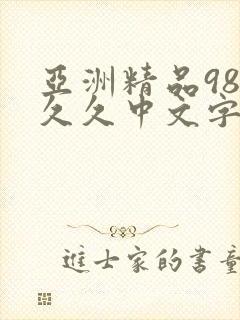 亞洲精品98
久久中文字
進士家的書童